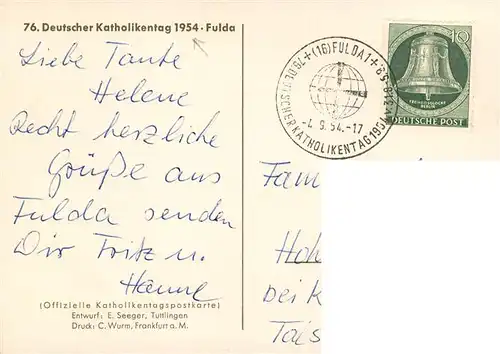 76. Deutscher Katholikentag 1954 · Fulda
Liebe Tante
Helene
Recht herzliche
Grüße aus
Fulda senden
Dir Fritz u.
Hanne
(Offizielle Katholikentagspostkarte)
Entwurf: E. Seeger, Tuttlingen
Druck: C. Wurm, Frankfurt a. M.
(16) FULDA 1
76. DEUTSCHER KATHOLIKENTAG 195
-4. 9. 54.-17
10
FREIHEITSGLOCKE
BERLIN
DEUTSCHE POST
Fam
Hoh
bei K
Tais